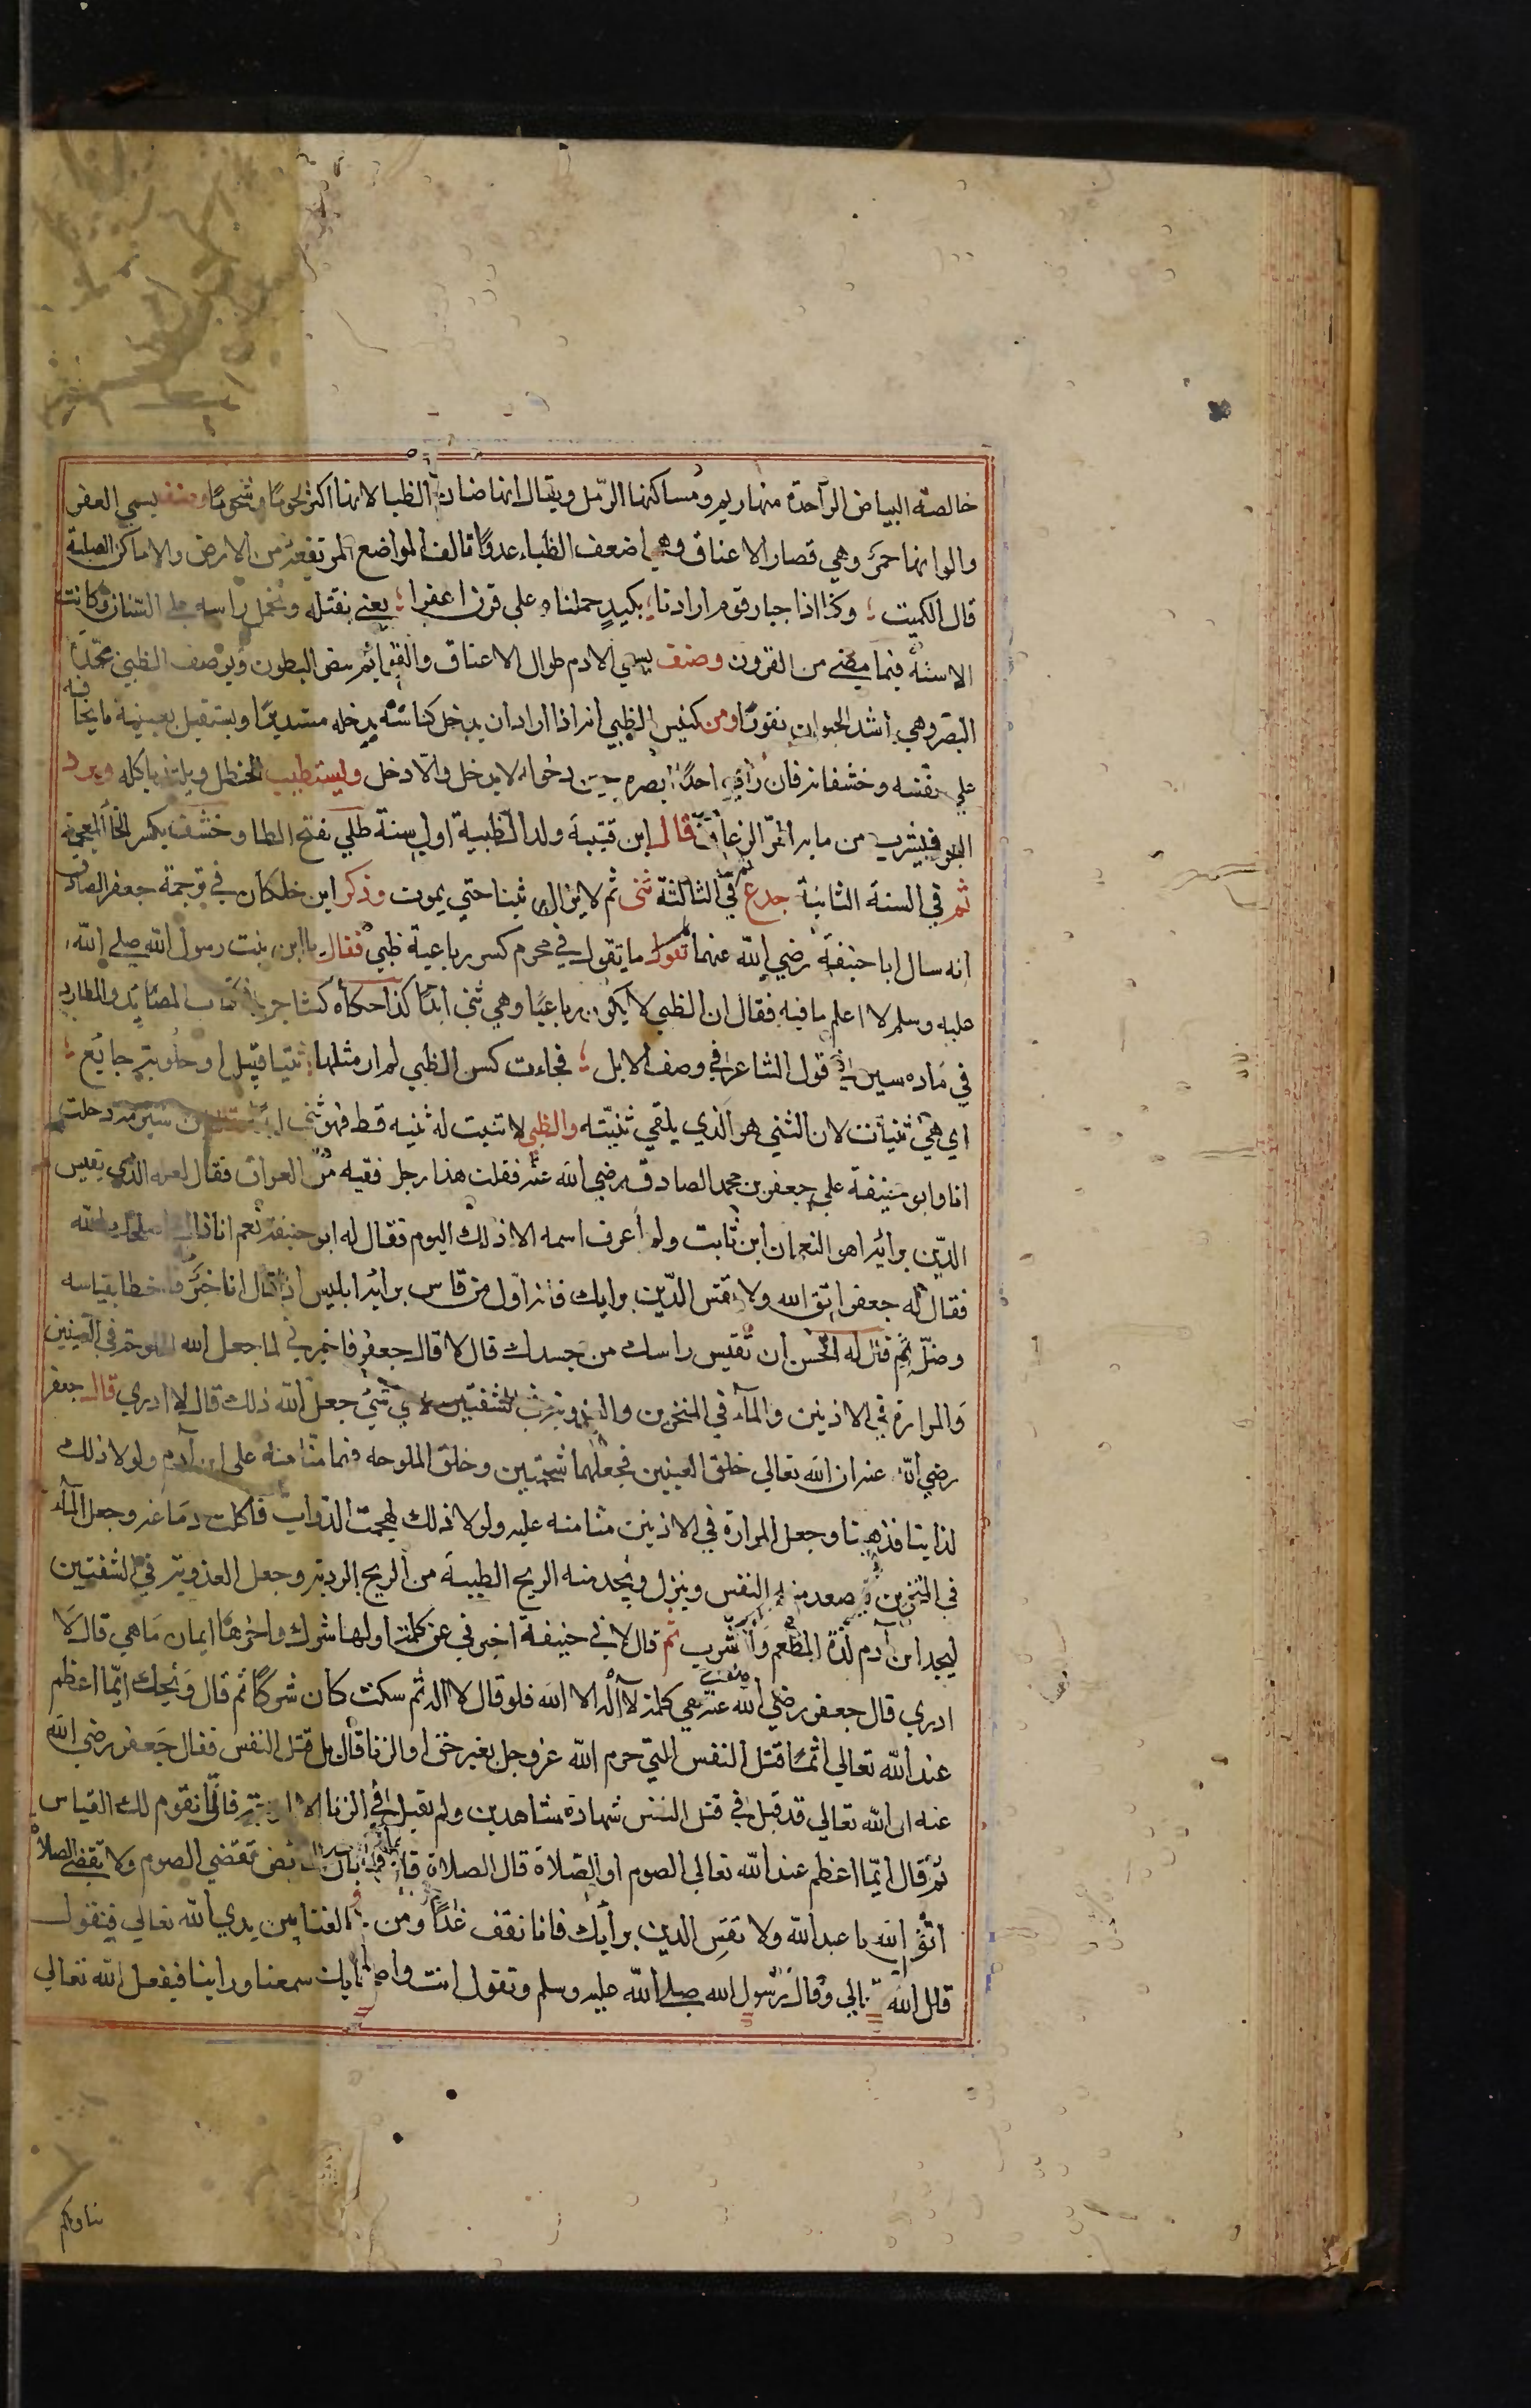 خالصة البياض الواحدة منها ريم ومساكنها الرمل ويقال انها ضان الظبا لانها اكثر لحوما وشحوما وصنف يسمي العفر
والوانها حمر وهي قصار الاعناق وهي اضعف الظباء عدوا تالف المواضع المرتفعة من الارض والاماكن الصلبة
قال الكميت ؛ وكنا اذا جبار قوم ارادنا ؛ بكيد حملناه علي قرن اعفرا ؛ يعني نقتله ونحمل راسه علي السنان وكانت
الاسنة فيما مضي من القرون وصنف يسمي الادم طوال الاعناق والقوائم بيض البطون ويوصف الظبي بحدة
البصر وهي اشد الحيوان نفورا ومن كيس الظبي انه اذا اراد ان يدخل كناسه يدخله مستدبرا ويستقبل بعينيه ما يخافه
علي نفسه وخشفانه فان راي احدا ابصره حين دخوله لا يدخل والا دخل ويستطيب الحنظل ويلتذ باكله ويرد
البحر فيشرب من مايه المر الزعاق قال ابن قتيبة ولد الظبية اول سنة طلي بفتح الطا وخشف بكسر الخا المعجمة
ثم في السنة الثانية جدع ثم في الثالثة ثني ثم لا يزال ثنيا حتي يموت وذكر ابن خلكان في ترجمة جعفر الصادق
انه سال ابا حنيفة رضي الله عنهما ما تقول في محرم كسر رباعية ظبي فقال يا ابن بنت رسول الله صلي الله
عليه وسلم لا اعلم ما فيه فقال ان الظبي لا يكون رباعيا وهي ثني ابدا كذا حكاه كشاجم في كتاب المصايد والمطارد
في ماده سين في قول الشاعر في وصف الابل ؛ فجاءت كسن الظبي لم ار مثلها ؛ قتيل او حلوبة جايع ؛
اي هي ثنيات لان الثني هو الذي يلقي ثنيته والظبي لا تنبت له ثنيه قط فهو ثني ابدا شبرمة دخلت
انا وابو حنيفة علي جعفر بن محمد الصادق رضي الله عنه فقلت هذا رجل فقيه من العراق فقال لعله الذي يقيس
الدين برائه اهو النعمان ابن ثابت ولم اعرف اسمه الا ذلك اليوم فقال له ابو حنيفة نعم انا ذاك اصلحك الله
فقال له جعفر اتق الله ولا تقس الدين برايك فانه اول من قاس برائه ابليس اذ قال انا خير فاخطا بقياسه
وضل ثم قال له اتحسن ان تقيس راسك من جسدك قال لا قال جعفر فاخبرني لما جعل الله الملوحة في العينين
والمرارة في الاذنين والماء في المنخرين والعذوبة في الشفتين لاي شئ جعل الله ذلك قال لا ادري قال جعفر
رضي الله عنه ان الله تعالي خلق العينين فجعلهما شحمتين وخلق الملوحه فيهما منا منه علي ابن آدم ولولا ذلك
لذابتا فذهبتا وجعل المرارة في الاذنين منا منه عليه ولولا ذلك لهجمت الدواب فاكلت دماغه وجعل الماء
في المنخرين يصعد منه النفس وينزل ويجد منه الريح الطيبة من الريح الردية وجعل العذوبة في الشفتين
ليجد ابن آدم لذة المطعم والمشرب ثم قال لابي حنيفة اخبرني عن كلمة اولها شرك واخرها ايمان ما هي قال لا
ادري قال جعفر رضي الله عنه هي كلمة لا اله الا الله فلو قال لا اله ثم سكت كان شركا ثم قال ويحك ايما اعظم
عند الله تعالي اثما قتل النفس التي حرم الله عز وجل بغير حق او الزنا قال بل قتل النفس فقال جعفر رضي الله
عنه ان الله تعالي قد قبل في قتل النفس شهادة شاهدين ولم يقبل في الزنا الا اربعة فاني تقوم لك القياس
ثم قال ايما اعظم عند الله تعالي الصوم او الصلاة قال الصلاة قال فما بال الحائض تقضي الصوم ولا تقضي الصلاة
اتق الله يا عبد الله ولا تقس الدين برأيك فانا نقف غدا ومن خالفنا بين يدي الله تعالي فنقول
قال الله تعالي وقال رسول الله صلي الله عليه وسلم وتقول انت واصحابك سمعنا وراينا فيفعل الله تعالي
بنا وبكم